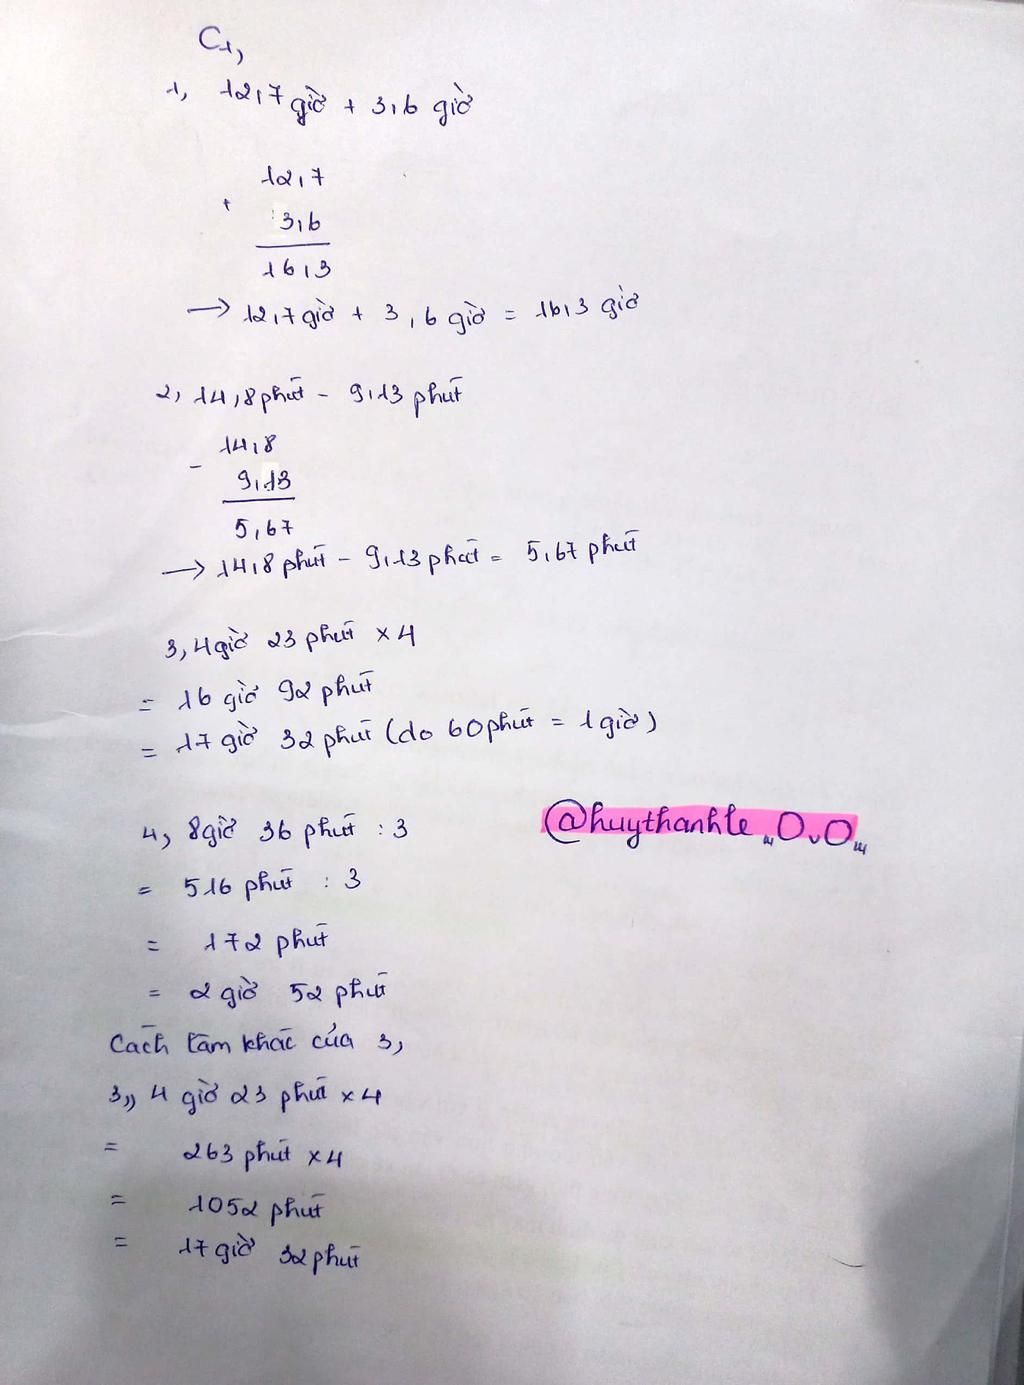 C1,
1, 12,7 giờ + 3,6 giờ
12,7
+
3,6
16,3
→ 12,7 giờ + 3,6 giờ = 16,3 giờ
2, 14,8 phút - 9,13 phút
14,8
-
9,13
5,67
→ 14,8 phút - 9,13 phút = 5,67 phút
3, 4 giờ 23 phút x 4
= 16 giờ 92 phút
= 17 giờ 32 phút (do 60 phút = 1 giờ)
4, 8 giờ 36 phút : 3
@huythanhle_,,OvO,,
= 516 phút : 3
= 172 phút
= 2 giờ 52 phút
Cách làm khác của 3,
3,, 4 giờ 23 phút x 4
= 263 phút x 4
= 1052 phút
= 17 giờ 32 phút